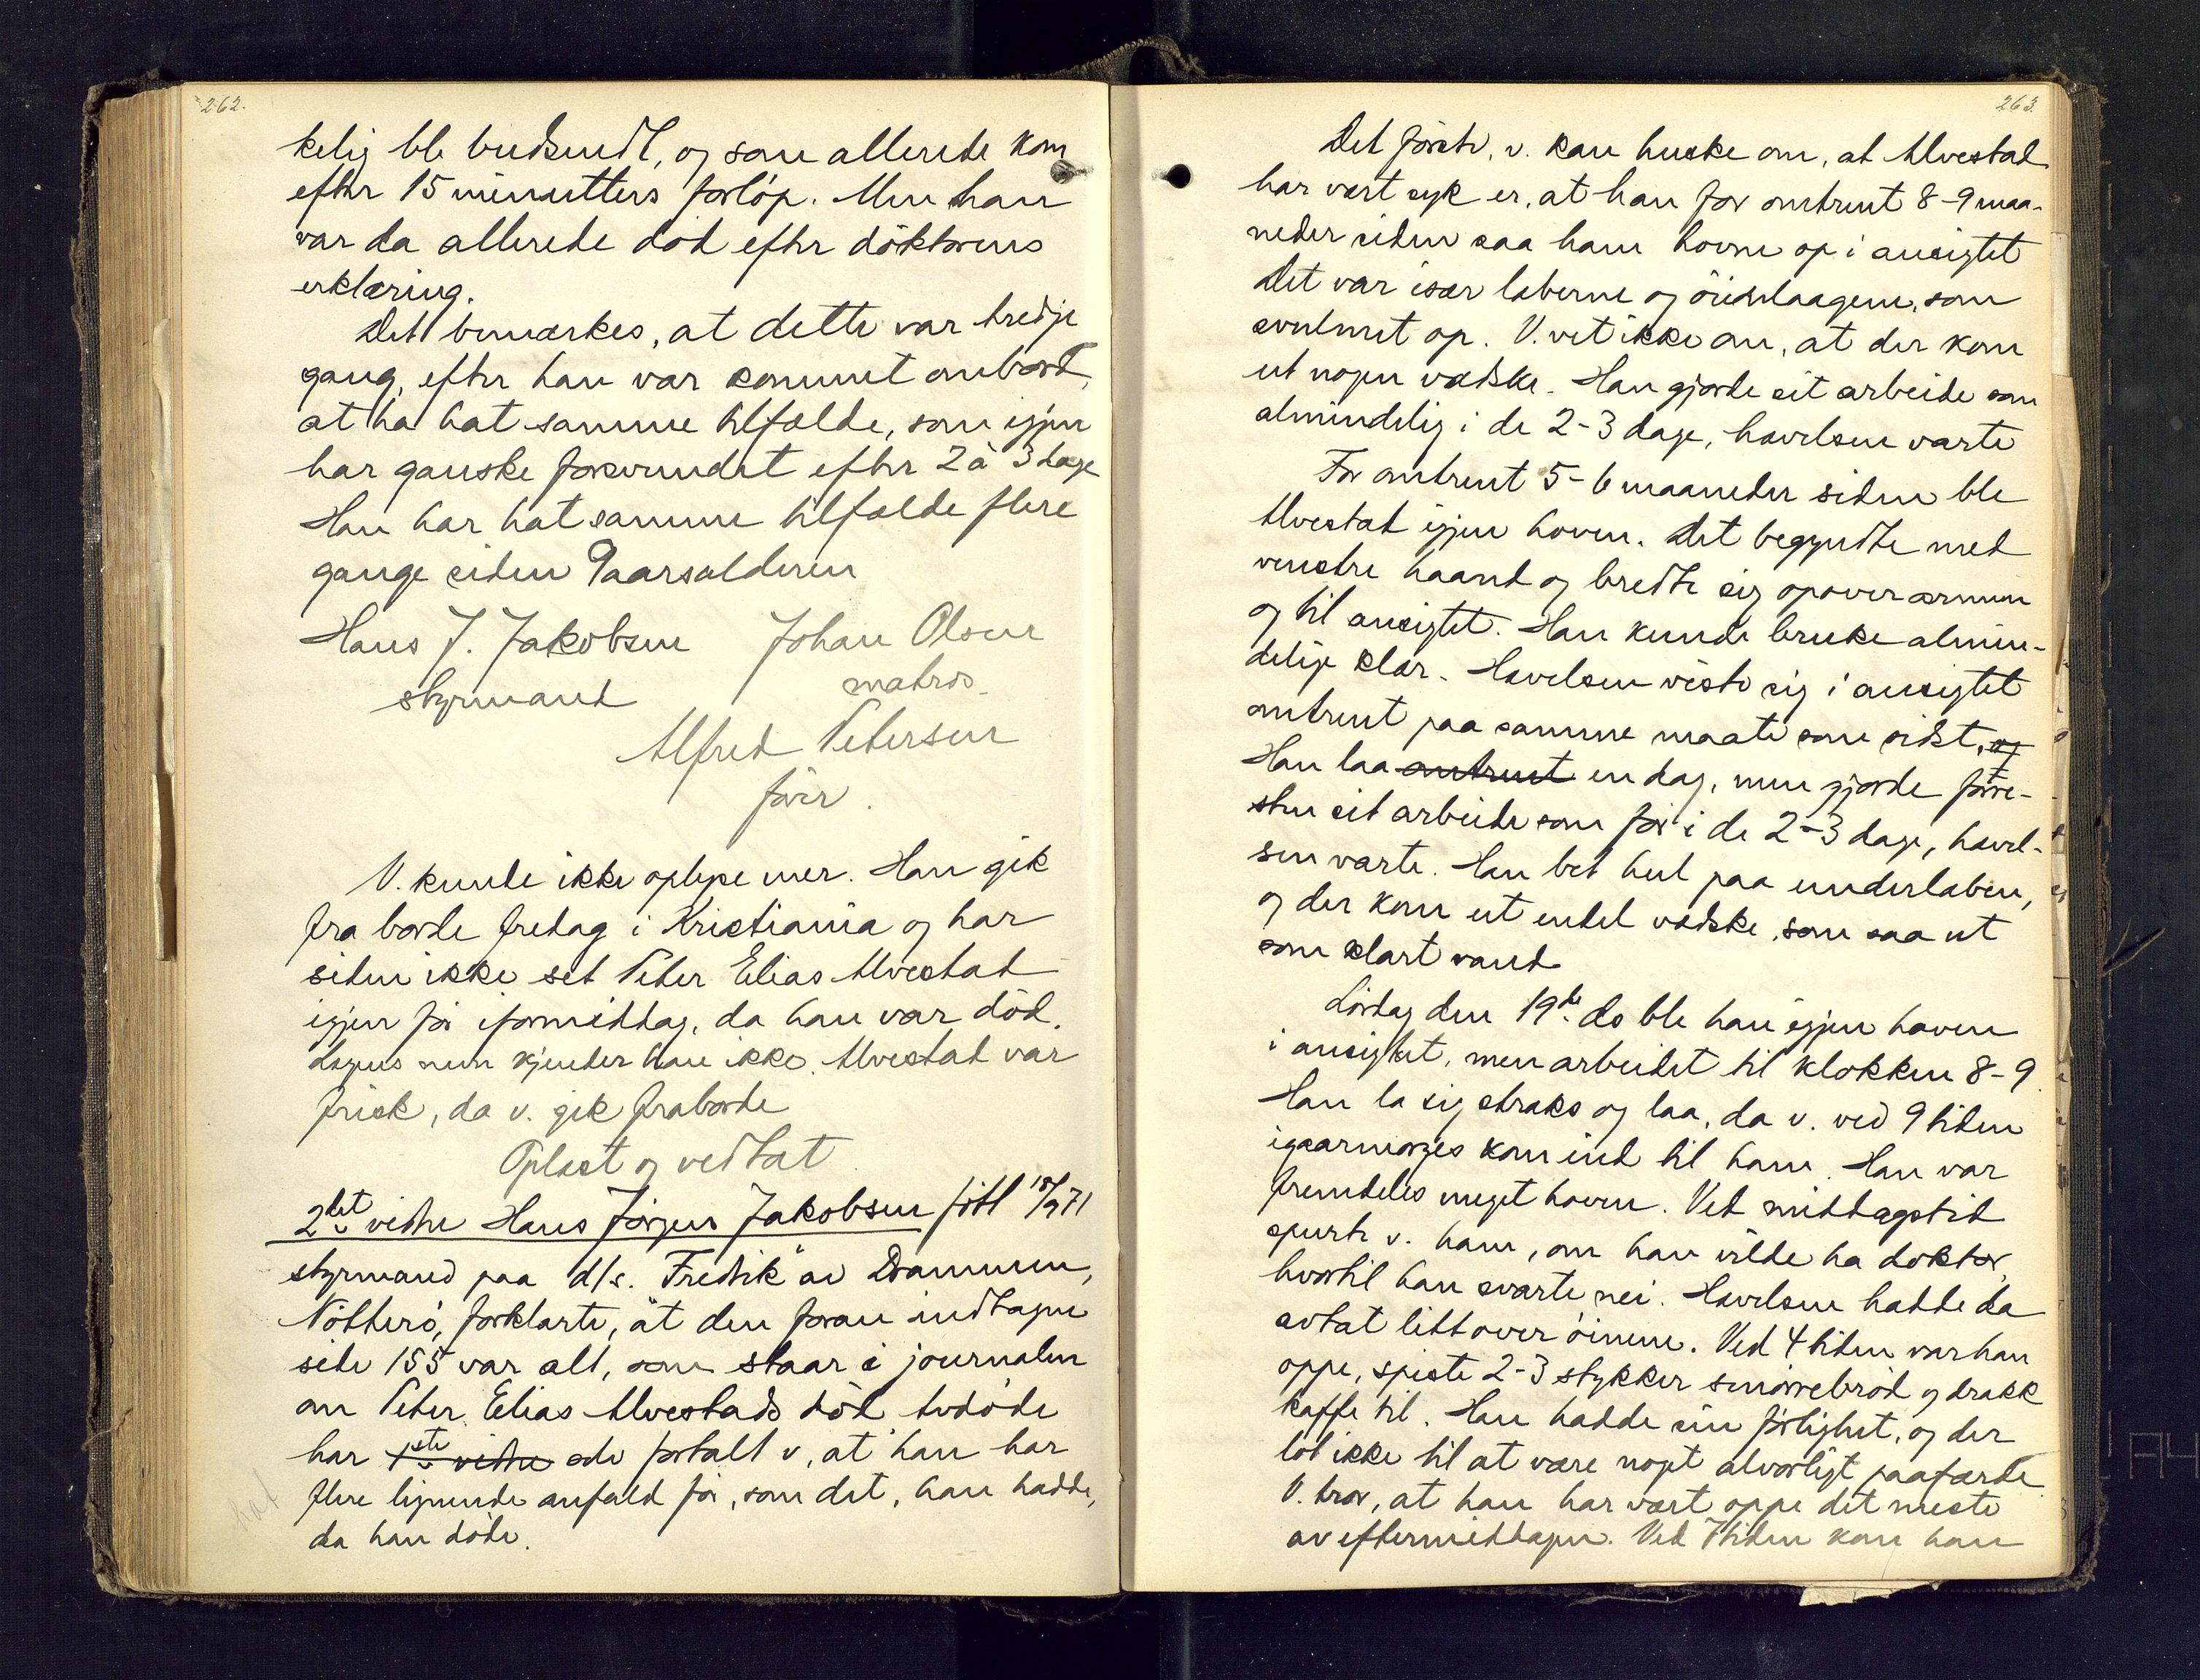 262.
kelig ble budsendt, og som allerede kom
efter 15 minutters forløp. Men han
var da allerede død efter doktorens
erklæring.
Det bemærkes, at dette var tredje
gang, efter han var kommet ombord,
at ha hat samme tilfælde, som igjen
har ganske forsvundet efter 2 à 3 dage
Han har hat samme tilfælde flere
gange siden 9aarsalderen
Hans J. Jakobsen Johan Olsen
styrmand matros.
Alfred Petersen
fører.
V. kunde ikke oplyse mer. Han gik
fra borde fredag i Kristiania og har
siden ikke set Peter Elias Alvestad
igjen før iformiddag, da han var død.
navn kjender han ikke. Alvestad var
frisk, da v. gik fraborde
Oplæst og vedtat.
2det vidne Hans Jørgen Jakobsen født 18/9 71
styrmand paa d/s. "Fredrik" av Drammen,
Nøtterø, forklarte, at den foran indtagne
side 155 var alt, som staar i journalen
om Peter Elias Alvestads død Avdøde
har 1ste vidne fortalt v, at han har
hat
flere lignende anfald før, som det, han hadde,
da han døde.
263.
Det første, v. kan huske om, at Alvestad
har vært syk er, at han for omtrent 8-9 maa-
neder siden saa ham hovne op i ansigtet
Det var især læberne og øienlaagene, som
svulmet op. V. vet ikke om, at der kom
ut nogen vædske. Han gjorde sit arbeide som
almindelig i de 2-3 dage, hævelsen varte
For omtrent 5-6 maaneder siden ble
Alvestad igjen hoven. Det begyndte med
venstre haand og bredte sig opover armen
og til ansigtet. Han kunde bruke almin-
delige klær. Hævelsen viste sig i ansigtet
omtrent paa samme maate som sidst, og
Han laa omtrent en dag, men gjorde forre-
sten sit arbeide som før i de 2-3 dage, hævel-
sen varte. Han bet hul paa underlæben,
og der kom ut endel vædske, som saa ut
som klart vand
Lørdag den 19de ds ble han igjen hoven
i ansigtet, men arbeidet til klokken 8-9.
Han la sig straks og laa, da v. ved 9 tiden
igaarmorges kom ind til ham. Han var
fremdeles meget hoven. Ved middagstid
spurte v. ham, om han vilde ha doktor,
hvortil han svarte nei. Hævelsen hadde da
avtat litt over øinene. Ved 4 tiden var han
oppe, spiste 2-3 stykker smørrebrød og drakk
kaffe til. Han hadde sin førlighet, og der
lot ikke til at være noget alvorligt paafærde
V. tror, at han har vært oppe det meste
av eftermiddagen. Ved 7 tiden kom han